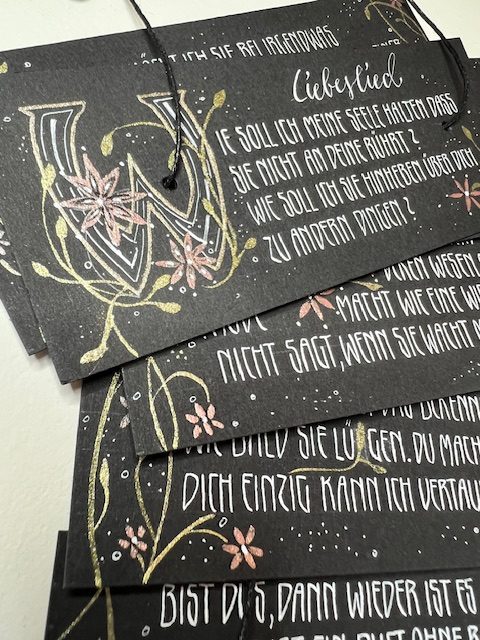 ICH SIE BEI IRGENDWAS
Liebeslied
WIE SOLL ICH MEINE SEELE HALTEN DASS
SIE NICHT AN DEINE RÜHRT?
WIE SOLL ICH SIE HINHEBEN ÜBER DICH
ZU ANDERN DINGEN?
WESEN
MACHT WIE EINE
NICHT SAGT, WENN SIE WACHT
DAS BEKENN
WIE BALD SIE LÜGEN. DU MACH
DICH EINZIG KANN ICH VERTAU
BIST DU S, DANN WIEDER IST ES
EIN DUFT OHNE